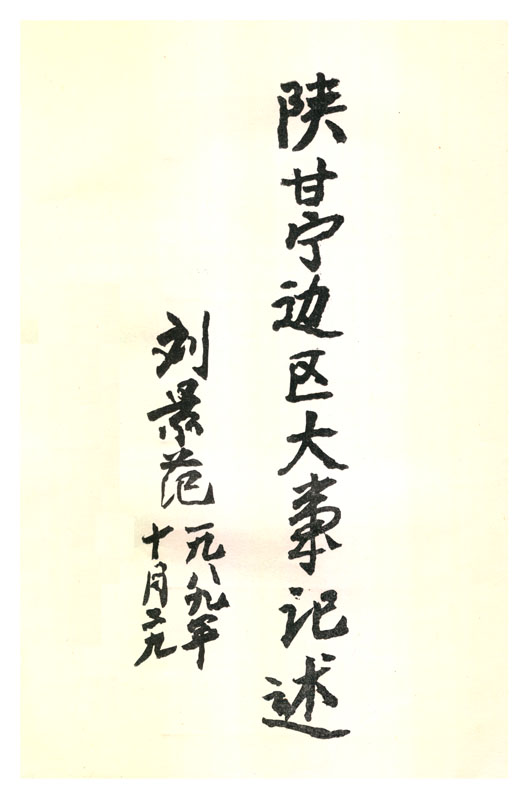 陕甘宁边区大事记述
刘景范
一九八九年
十月二九